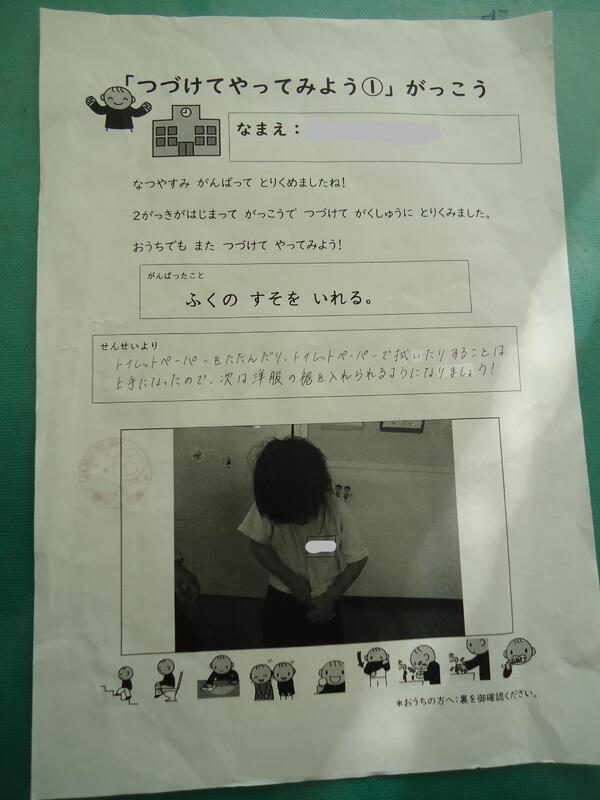 「つづけてやってみよう①」がっこう
なまえ：
なつやすみ がんばって とりくめましたね！
2がっきがはじまって がっこうで つづけて がくしゅうに とりくみました。
おうちでも また つづけて やってみよう！
がんばったこと
ふくの すそを いれる。
せんせいより
トイレットペーパーをたたんだり、トイレットペーパーで拭いたりすることは
上手になったので、次は洋服の裾を入れられるようになりましょう！
＊おうちの方へ：裏を御確認ください。